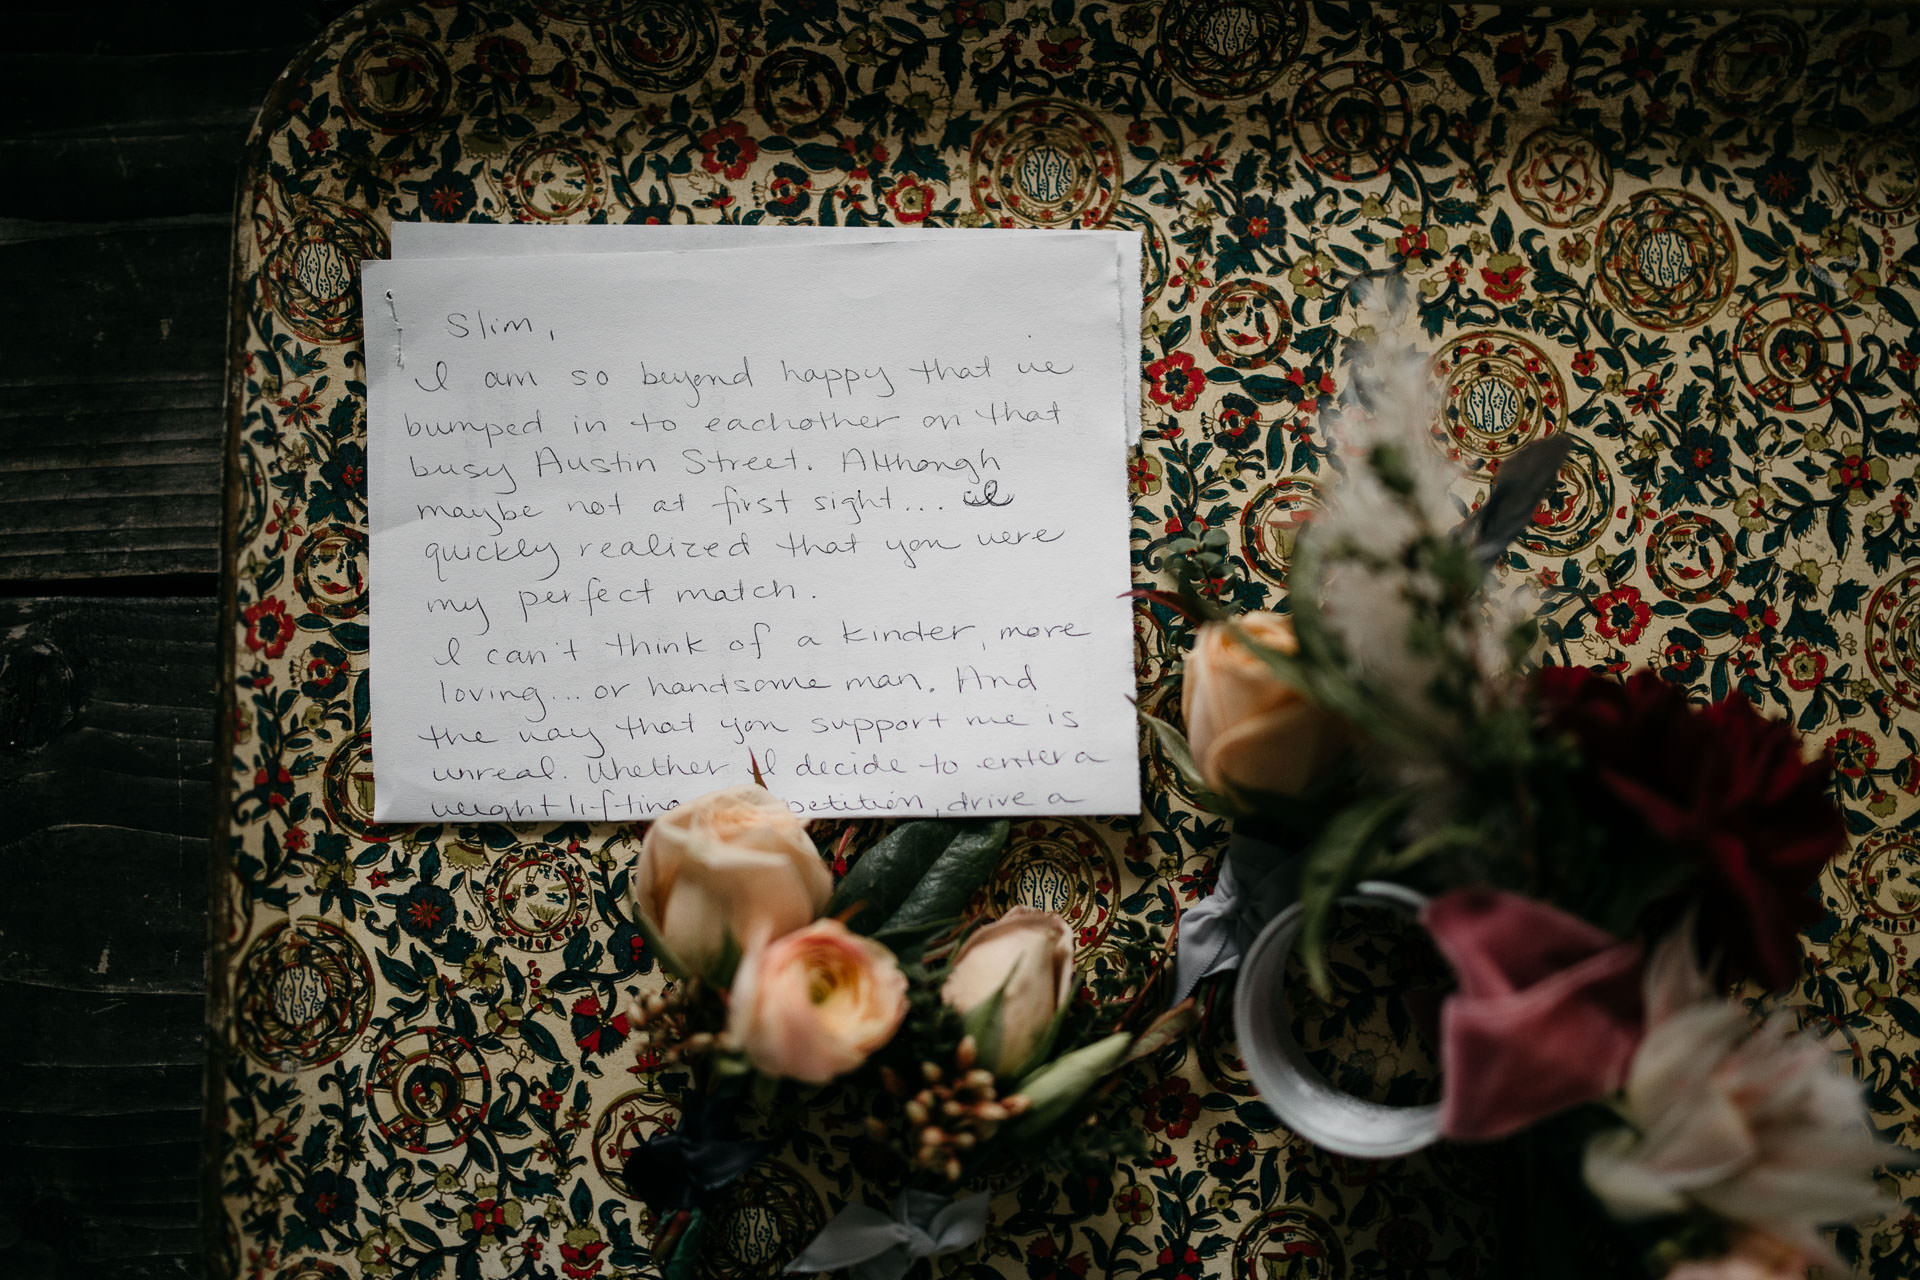 Slim,
I am so beyond happy that we
bumped in to eachother on that
busy Austin Street. Although
maybe not at first sight... I
quickly realized that you were
my perfect match.
I can't think of a kinder, more
loving... or handsome man. And
the way that you support me is
unreal. Whether I decide to enter a
weightlifting petition, drive a